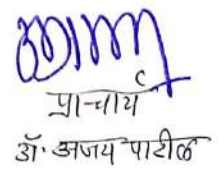 प्राचार्य
डॉ. अजय पाटील